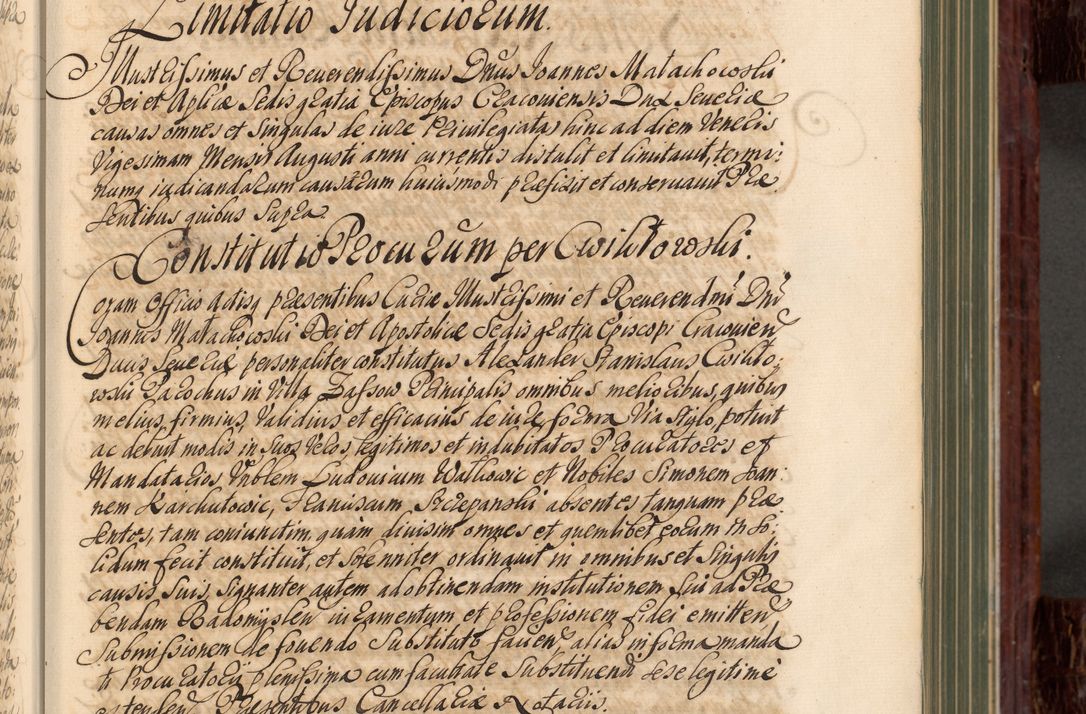 Limitatio Judiciorum.
Illustrissimus et Reuerendissimus Dnus Joannes Małachowski
Dei et Aplicæ Sedis gratia Episcopus Cracouiensis Dux Seueriæ
causas omnes et singulas de iure Priuilegiatas hinc ad diem Veneris
Vigesimam Mensis Augusti anni currentis distulit et limitauit, termi:
numq iudicandarum causarum huiusmodi præfixit et conseruauit Præ
sentibus quibus Supra.
Constitutio Procurum per Cwilitowski.
Coram Officio actisq præsentibus Curiæ Illustrissimi et Reuerendmi Dni
Joannis Małachowski Dei et Apostolicæ Sedis gratia Episcopi Cracouien
Ducis Seueriæ personaliter constitutus Alexander Stanislaus Cwilito:
wski Parochus in Villa Dassow Principalis omnibus melioribus, quibus
melius, firmius, Validius et efficacius de iure forma Via stylo potuit
ac debuit modis in suos Veros, legitimos et indubitatos Procuratores et
Mandatarios Vnblem Ludouicum Walkowic et Nobiles Simonem Joan:
nem Karchutowic, Franciscum Szczepanski absentes tanquam præ
sentes, tam coniunctim quam diuisim omnes et quemlibet eorum in so:
lidum fecit constituit, et solenniter ordinauit in omnibus et singulis
causis suis, signanter autem ad obtinendam institutionem sui ad Præ
bendam Radomyslen iuramentum et professionem fidei emitten
Submissionem de fouendo Substituto facien alias in forma manda
ti Procuratorij plenissima cum facultate Substituendi sese legitime
ostenden Præsentibus Cancellariæ Notarijs.